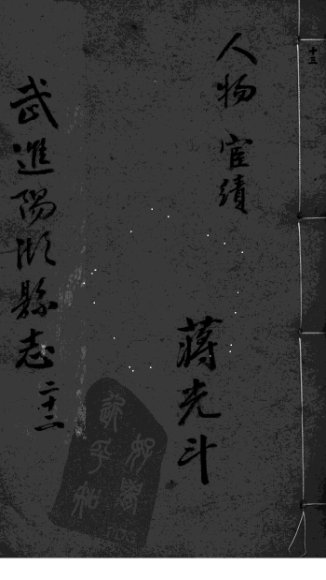 十五
人物 宦績
蔣光斗
武進陽湖縣志 二十二